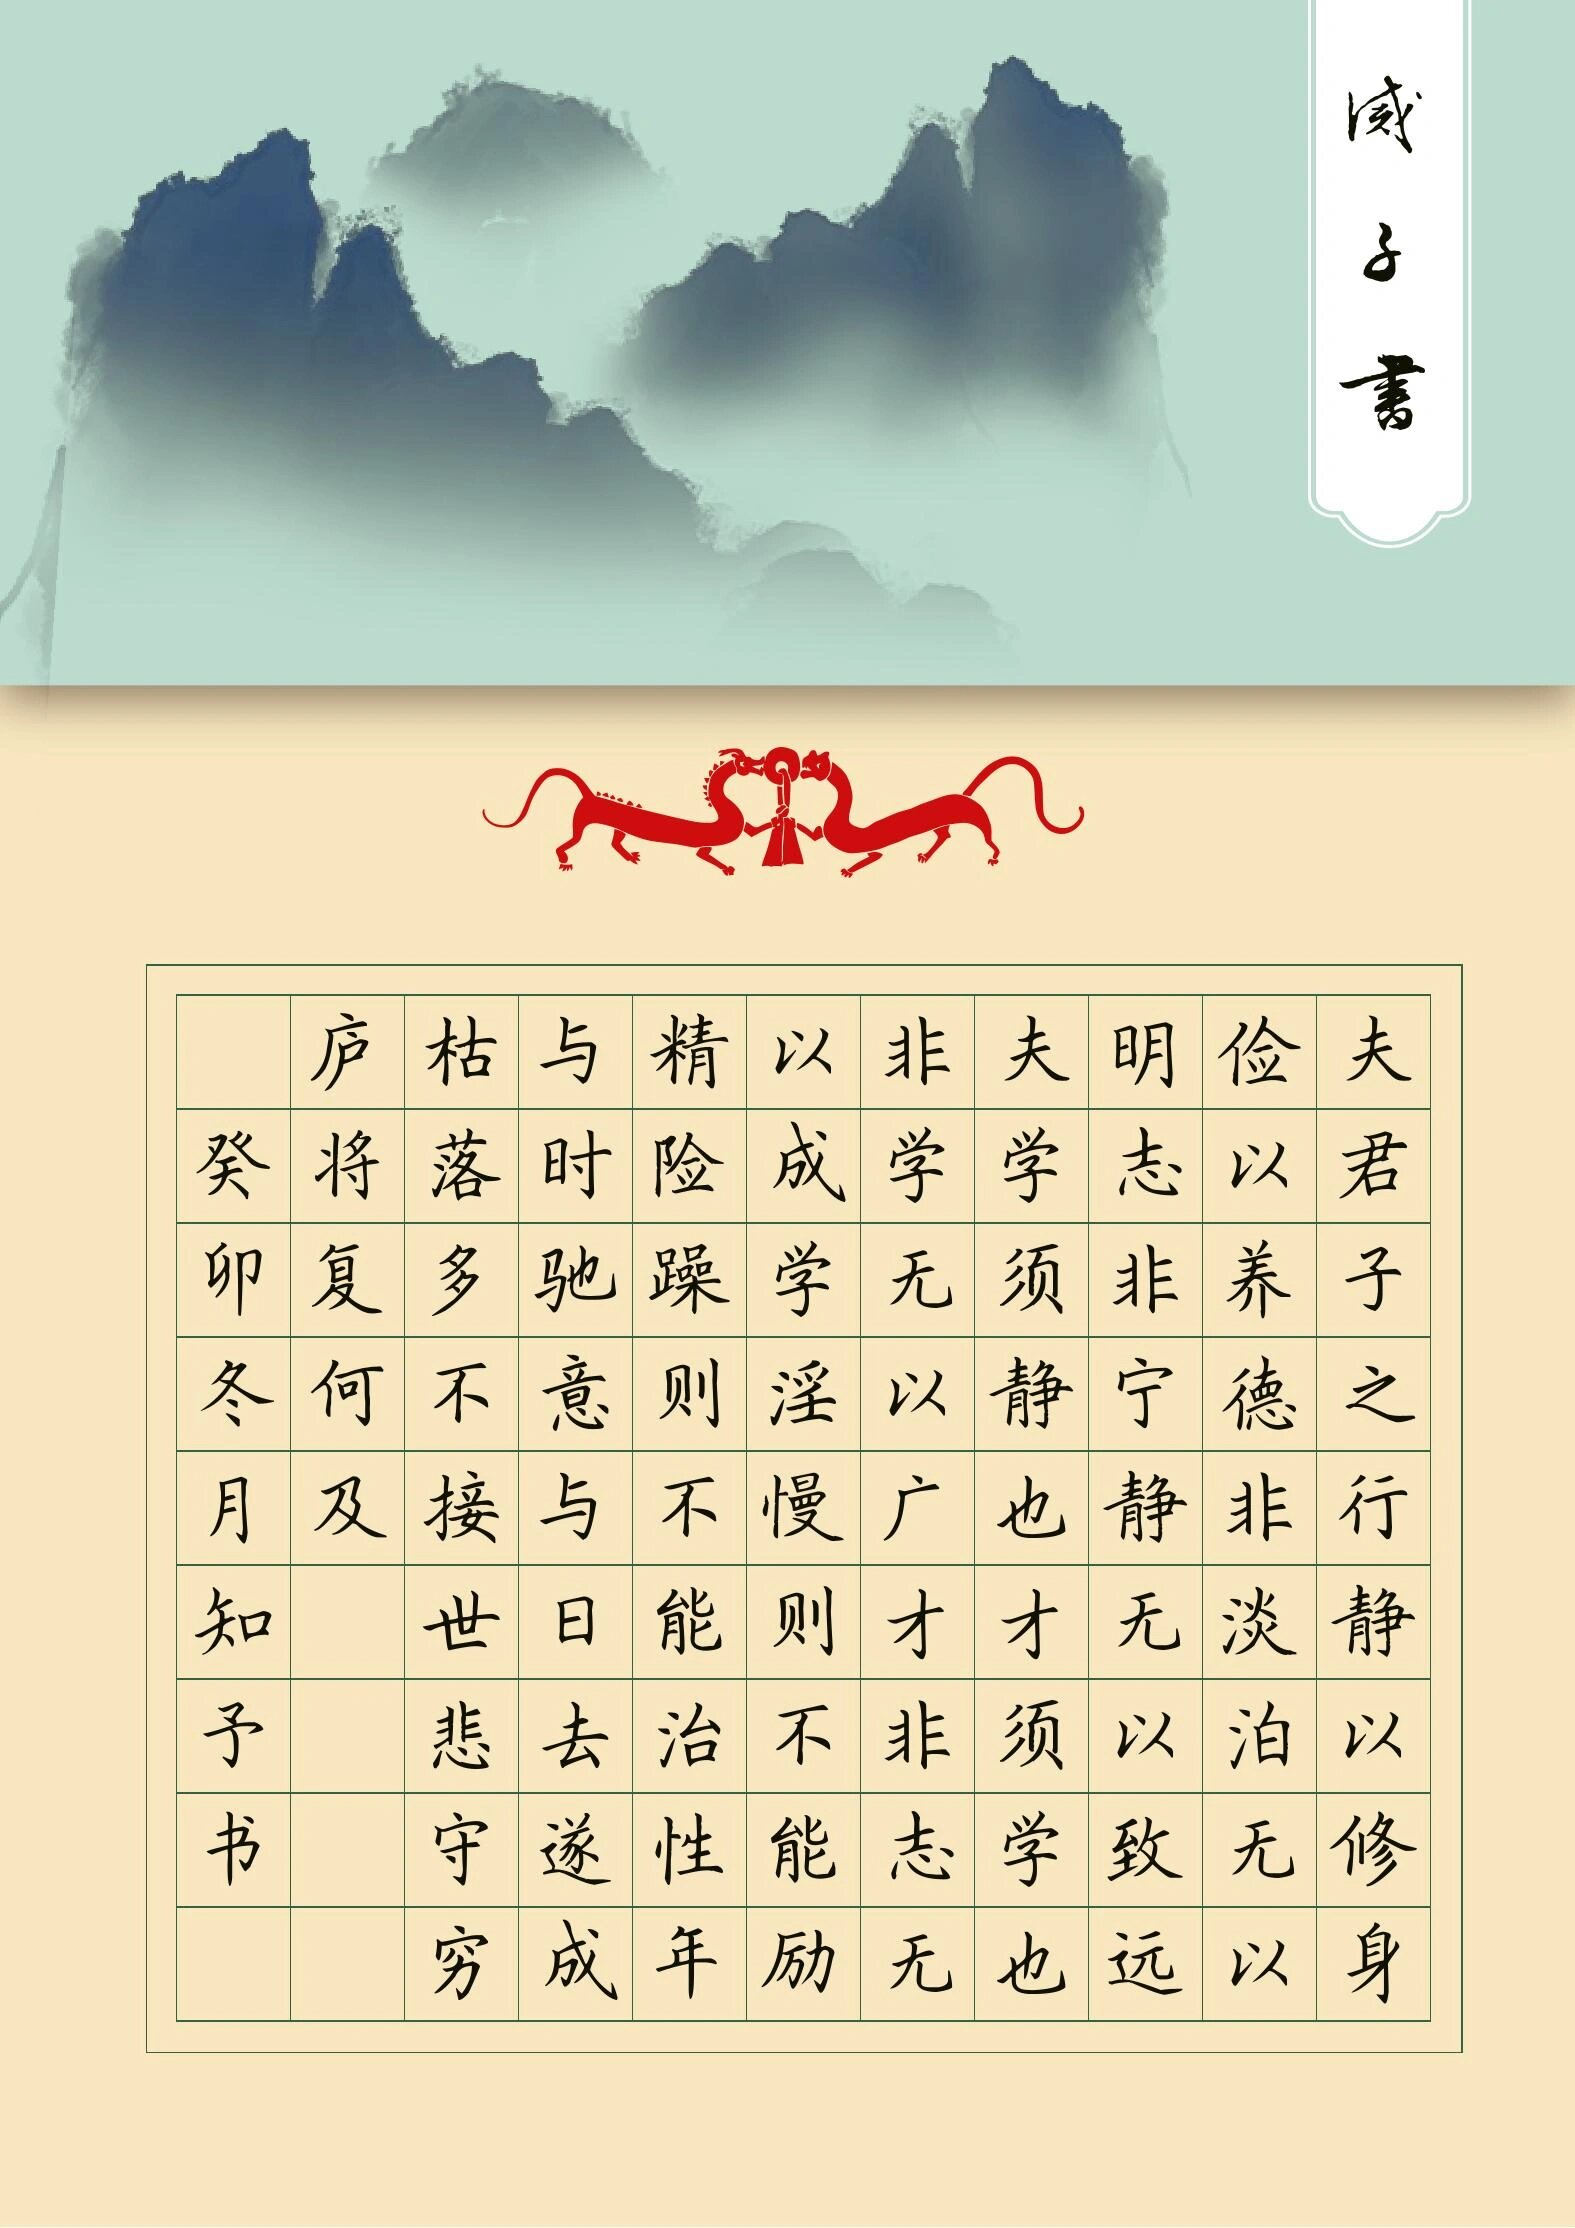 诫子書
夫君子之行静以修身
俭以养德非淡泊无以
明志非宁静无以致远
夫学须静也才须学也
非学无以广才非志无
以成学淫慢则不能励
精险躁则不能治性年
与时驰意与日去遂成
枯落多不接世悲守穷
庐将复何及
癸卯冬月知予书